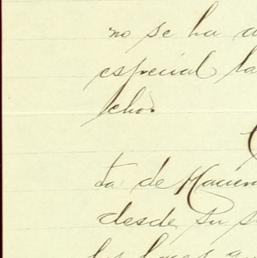 no se ha
especial la
cho.
ta de Hacien
desde su s